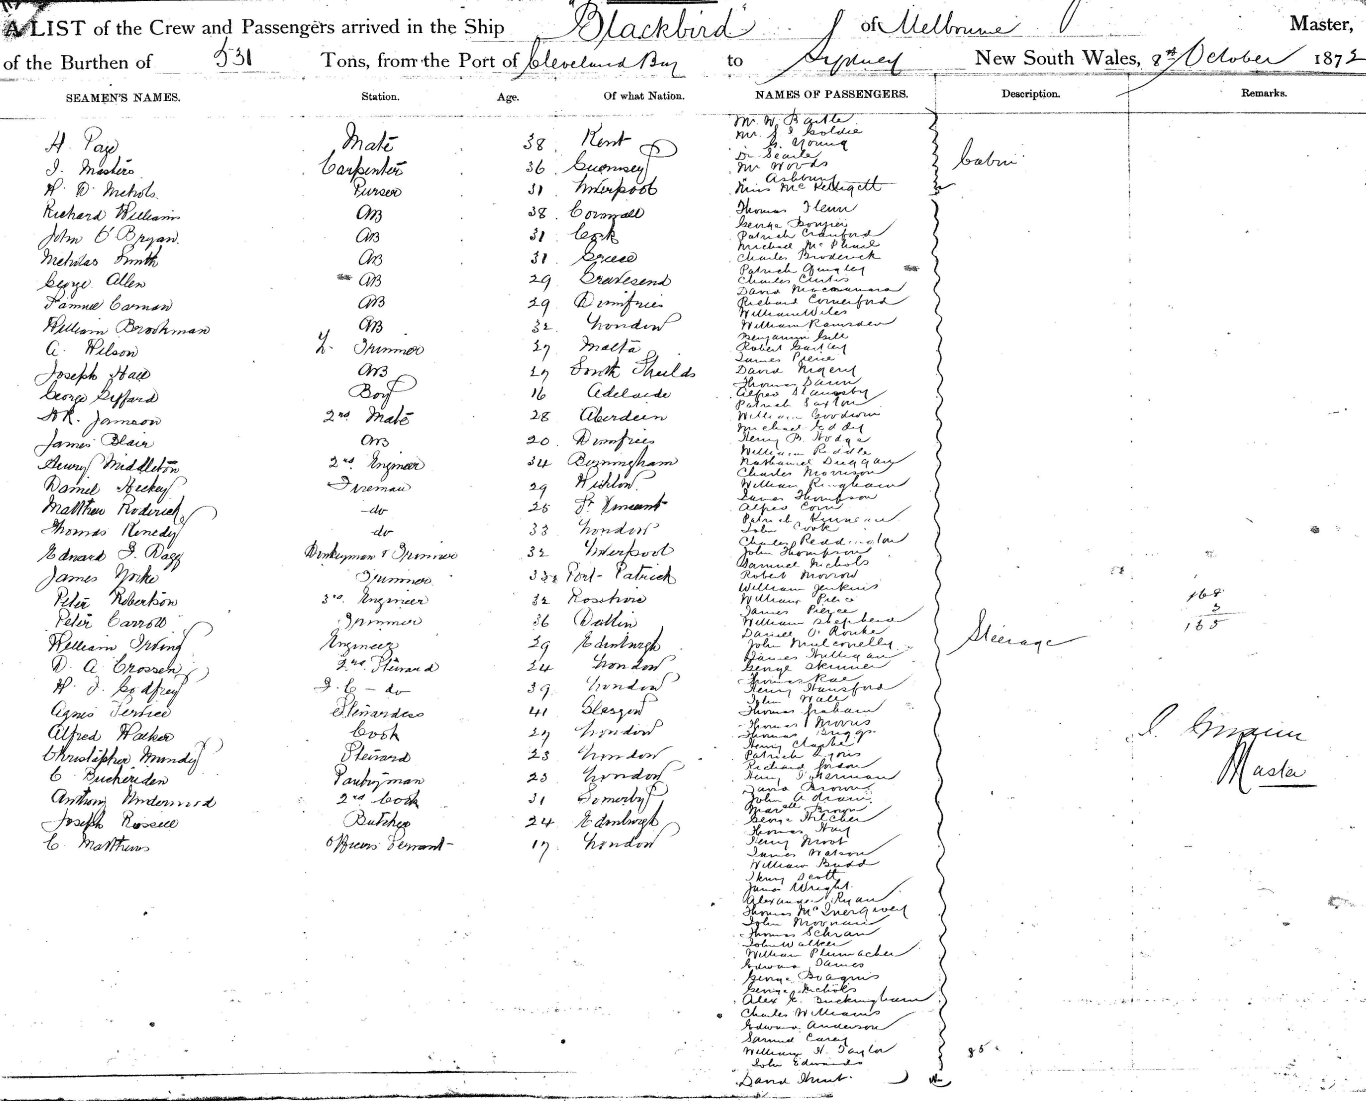 A LIST of the Crew and Passengers arrived in the Ship "Blackbird" of Melbourne Master,
of the Burthen of 531 Tons, from the Port of Cleveland Bay to Sydney New South Wales, 8th October 1872
SEAMEN'S NAMES. Station. Age. Of what Nation.
H. Page Mate 38 Kent
I. Masters Carpenter 36 Guernsey
H. D. Nichols Purser 31 Liverpool
Richard Williams AB 38 Cornwall
John O'Bryan AB 31 Cork
Nicholas Smith AB 31 Greece
George Allen AB 29 Gravesend
Samuel Carnan AB 29 Dumfries
William Brookman AB 32 London
A. Wilson Trimmer 27 Malta
Joseph Hall AB 27 South Shields
George Giffard Boy 16 Adelaide
Jamieson 2nd Mate 28 Aberdeen
James Blair AB 20 Dumfries
Henry Middleton 2nd Engineer 34 Birmingham
Daniel Hickey Fireman 29 Wicklow
Matthew Roderick do 25 St Vincent
Thomas Kenedy do 33 London
Edward J. Dagg Donkeyman & Trimmer 32 Liverpool
James Yorke Trimmer Port-Patrick
Peter Robertson 3rd Engineer 32 Rosshire
Peter Carroll Trimmer 36 Dublin
William Irving Engineer 39 Edinburgh
D. A. Crossen 2nd Steward 24 London
H. J. Godfrey do 39 London
Agnes Service Stewardess 41 Glasgow
Alfred Walker Cook 27 London
Christopher Mundy Steward 23 London
C. Pantryman 23 London
Anthony Underwood 2nd Cook 31 Somerby
Joseph Russell Butcher 24 Edinburgh
C. Matthews Officers Servant 17 London
NAMES OF PASSENGERS. Description. Remarks.
Mr. W. Bartle
Mr. Goldie
G. Young
Dr Searle
Mr Woods
" Ashbury
Miss
Cabin
Thomas Flenn
George
Patrick Crauford
Michael McPhail
Charles Broderick
Patrick Quigley
Charles Curtis
David Macnamara
Richard Comerford
William Wiles
William Ramsden
Benjamin Gill
Robert
James Pierce
David
Thomas Dann
Alfred
Patrick Saxton
William Goodwin
Michael Eddy
Henry B. Hodge
William Riddle
Nathaniel Duggan
Charles Morrison
William Kingham
James Thompson
Alfred
Patrick
John Cook
Charles Reddington
John Thompson
Samuel Nichols
Robert Morrow
William Jenkins
William Peice
James Pierce
William Shepherd
Daniel O'Rourke
John
James Hulligan
George Skinner
Thomas Rae
Henry Hansford
John Wall
Thomas Graham
Thomas Morris
Thomas Briggs
Henry Clarke
Patrick Lyons
Richard
Henry
David Brown
John Adram
Brown
George Hilcher
Thomas Hay
Henry Moot
James Watson
William Budd
Henry Scott
James Wright
Alexander Ryan
Thomas
John
Thomas Schran
John Walker
William Plumacher
Edward James
George
George Nichols
Alex G. Buckingham
Charles Williams
Edward Anderson
Samuel Carey
William H. Taylor
John Edwards
David Hunt
Steerage
85
168
3
165
Master